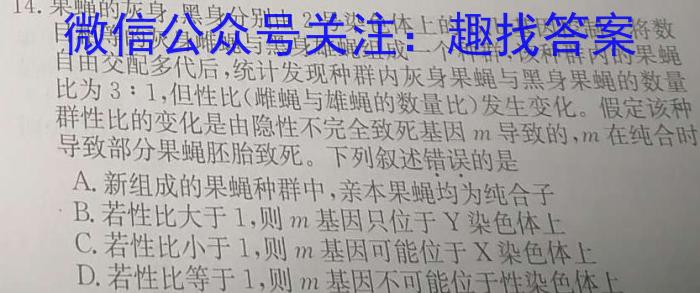 14. 果蝇的灰身、黑身分别
微信公众号关注：趣找答案
自由交配多代后,统计发现种群内灰身果蝇与黑身果蝇的数量
比为 3∶1,但性比(雌蝇与雄蝇的数量比)发生变化。假定该种
群性比的变化是由隐性不完全致死基因 m 导致的,m 在纯合时
导致部分果蝇胚胎致死。下列叙述错误的是
A. 新组成的果蝇种群中,亲本果蝇均为纯合子
B. 若性比大于 1,则 m 基因只位于 Y 染色体上
C. 若性比小于 1,则 m 基因可能位于 X 染色体上
D. 若性比等于 1,则 m 基因不可能位于性染色体上